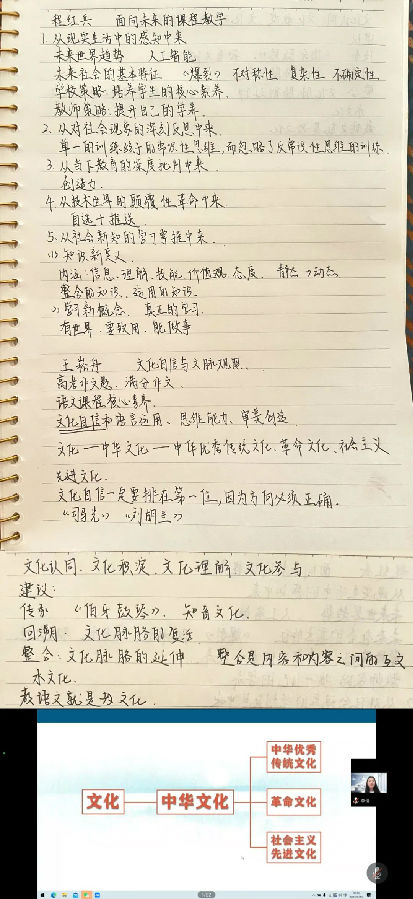 程红兵 面向未来的课程教学
1.从现实生活中的感知中来
未来世界趋势 人工智能
未来社会的基本特征 《爆裂》不对称性 复杂性 不确定性
学校策略 培养学生的核心素养
教师策略 提升自己的学养
2.从对社会现象的深刻反思中来
单一的训练孩子的常规性思维,而忽略了反常规性思维的训练.
3.从当下教育的深度批判中来
创造力
4.从技术世界的颠覆性革命中来
自选+推送
5.从社会新知的学习掌握中来
(1)知识新意义
内涵:信息、理解、技能、价值观、态度 静态→动态
整合的知识、运用的知识.
(2)学习新概念 真正的学习
有世界、要致用、能做事
王崧舟 文化自信与文脉观照
高考作文题 满分作文
语文课程核心素养
文化自信和语言运用、思维能力、审美创造
文化——中华文化——中华优秀传统文化、革命文化、社会主义
先进文化.
文化自信一定要排在第一位,因为方向必须正确.
文化认同、文化积淀、文化理解、文化参与
建议:
传承 《伯牙鼓琴》、知音文化.
回溯: 文化脉胳的复活
整合:文化脉胳的延伸 整合是内容和内容之间的互文
水文化.
教语文就是教文化.
中华优秀
传统文化
文化
中华文化
革命文化
社会主义
先进文化